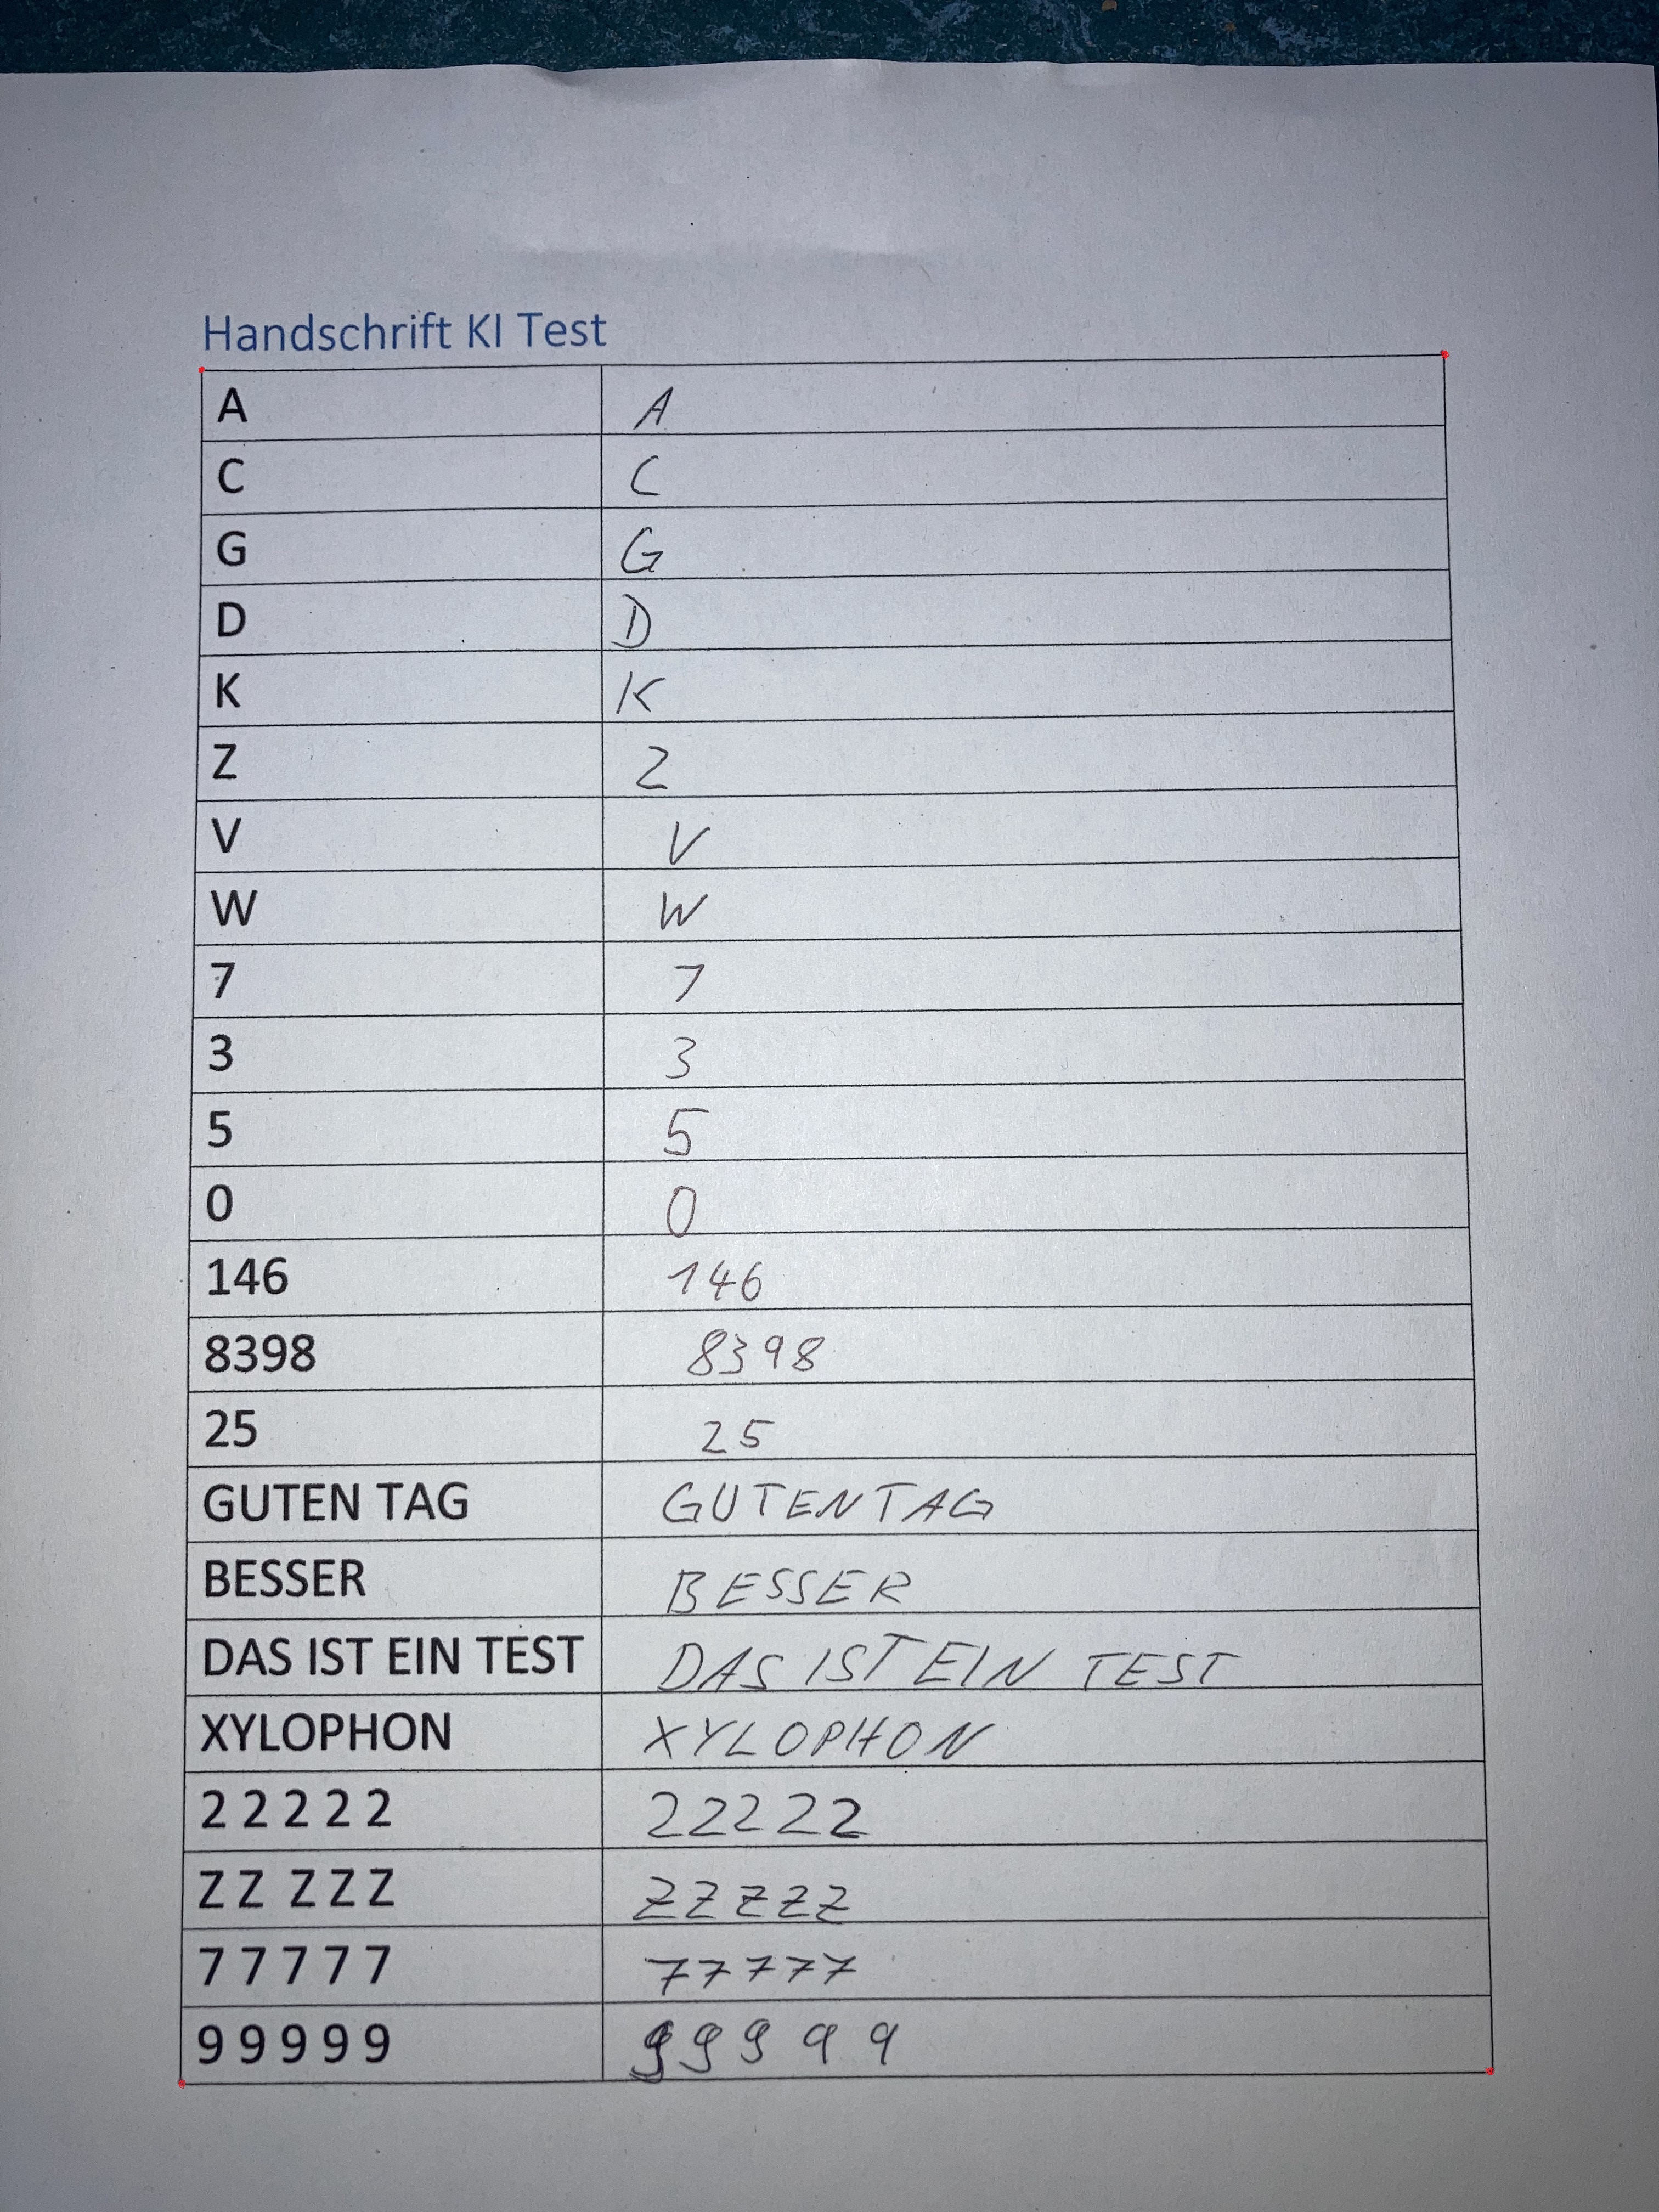 Handschrift KI Test
A A
C C
G G
D D
K K
Z Z
V V
W W
7 7
3 3
5 5
0 0
146 146
8398 8398
25 25
GUTEN TAG GUTEN TAG
BESSER BESSER
DAS IST EIN TEST DAS IST EIN TEST
XYLOPHON XYLOPHON
2 2 2 2 2 2 2 2 2 2
Z Z Z Z Z Z Z Z Z Z
7 7 7 7 7 7 7 7 7 7
9 9 9 9 9 9 9 9 9 9